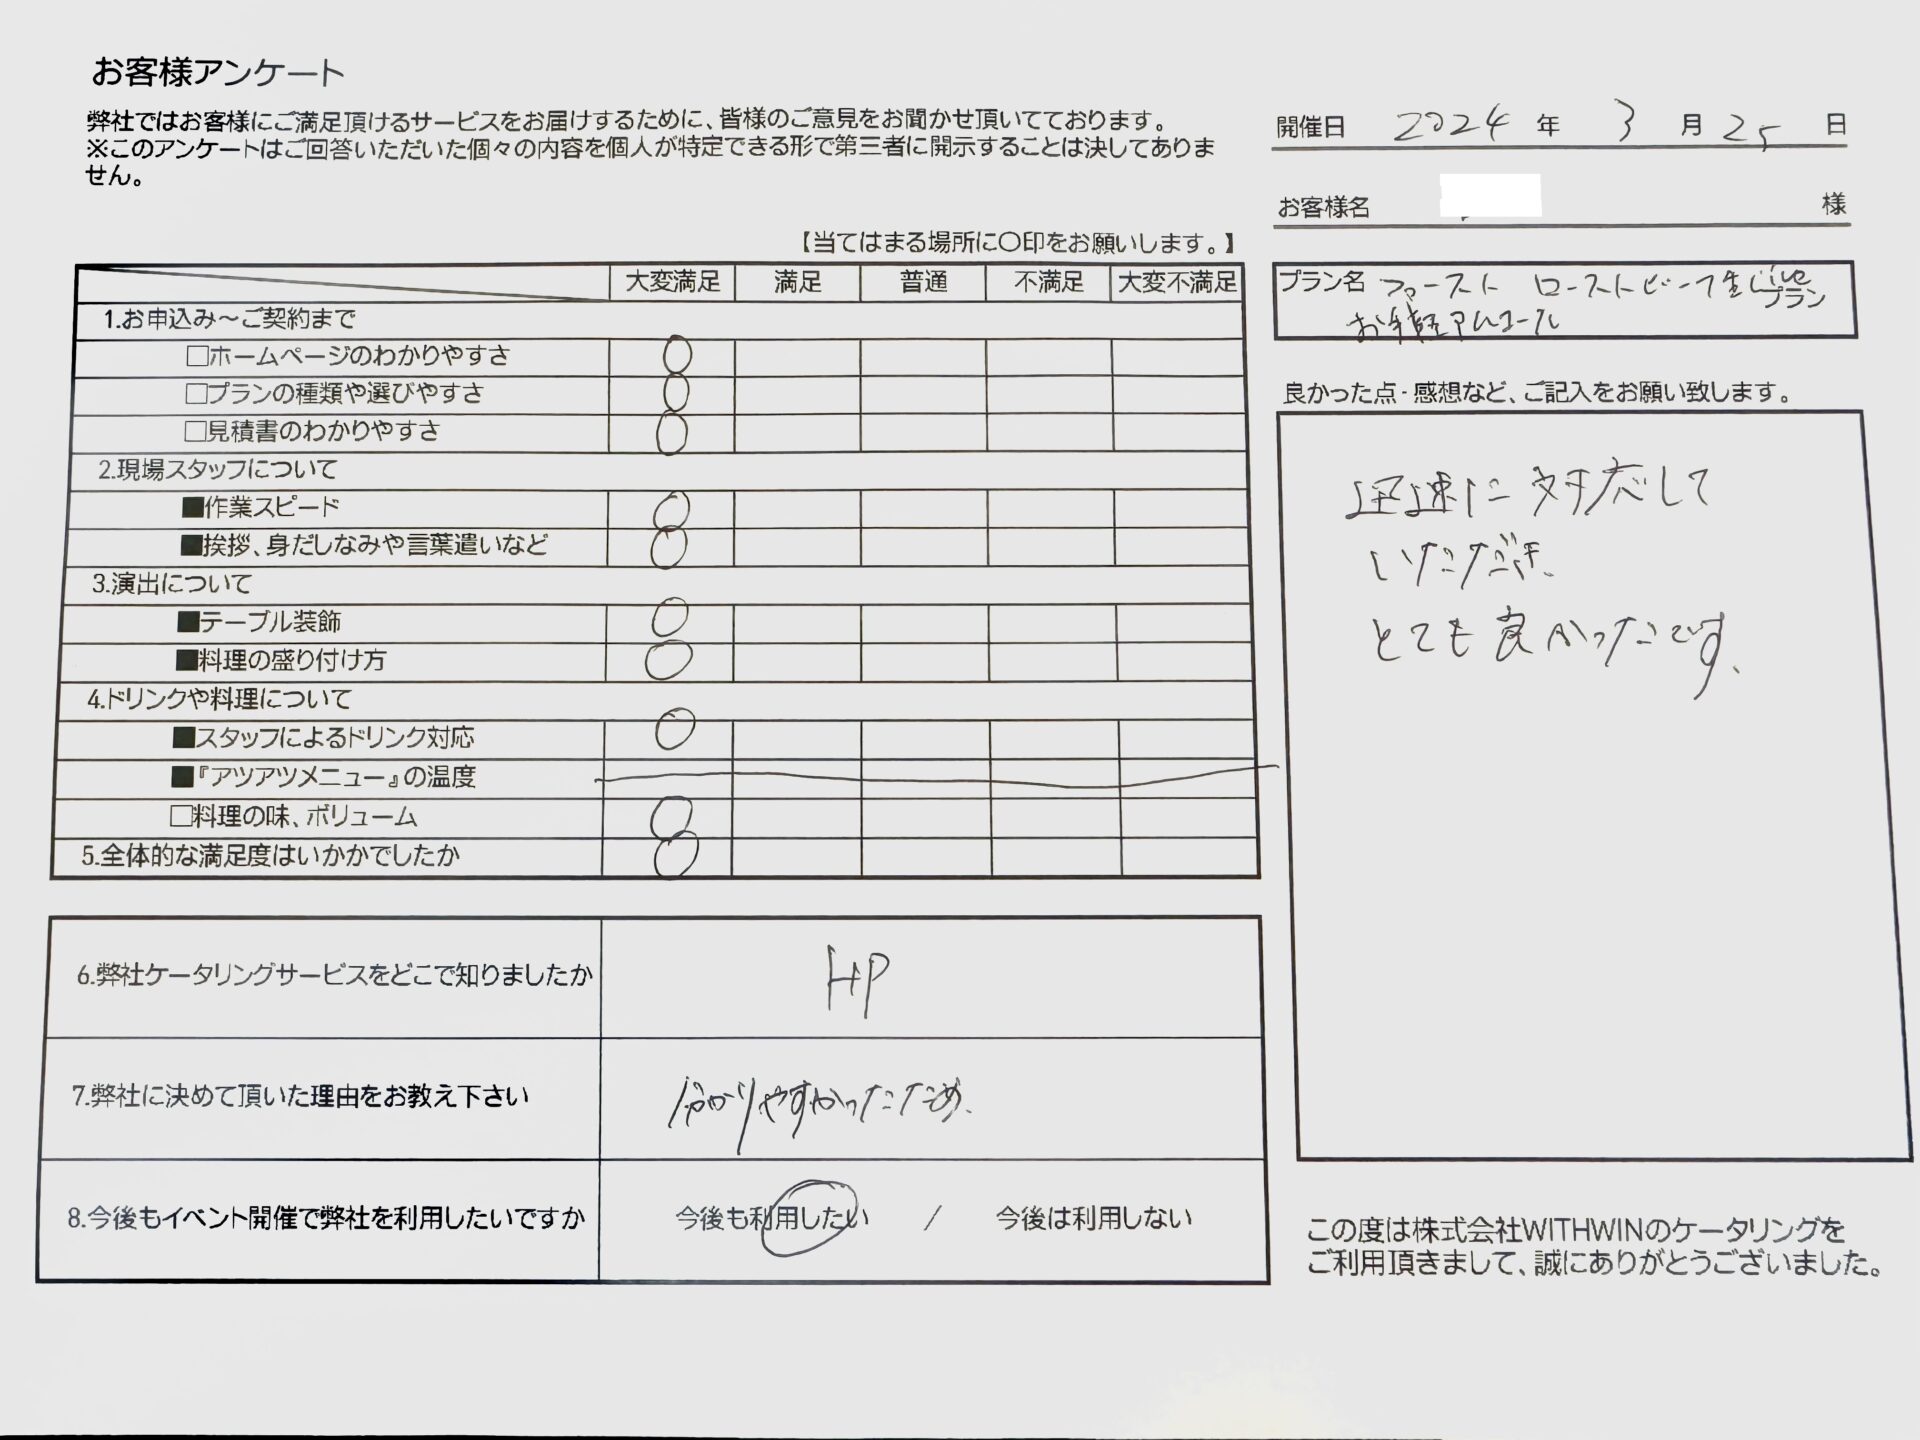 お客様アンケート
弊社ではお客様にご満足頂けるサービスをお届けするために、皆様のご意見をお聞かせ頂いてております。
※このアンケートはご回答いただいた個々の内容を個人が特定できる形で第三者に開示することは決してありま
せん。
開催日 2024 年 3 月 25 日
お客様名 様
【当てはまる場所に〇印をお願いします。】
プラン名 ファースト ローストビーフ生Live
プラン
お手軽アルコール
大変満足 満足 普通 不満足 大変不満足
1.お申込み～ご契約まで
□ホームページのわかりやすさ
□プランの種類や選びやすさ
□見積書のわかりやすさ
2.現場スタッフについて
■作業スピード
■挨拶、身だしなみや言葉遣いなど
3.演出について
■テーブル装飾
■料理の盛り付け方
4.ドリンクや料理について
■スタッフによるドリンク対応
■『アツアツメニュー』の温度
□料理の味、ボリューム
5.全体的な満足度はいかかでしたか
良かった点・感想など、ご記入をお願い致します。
迅速に対応して
いただき、
とても良かったです。
6.弊社ケータリングサービスをどこで知りましたか HP
7.弊社に決めて頂いた理由をお教え下さい 分かりやすかったため。
8.今後もイベント開催で弊社を利用したいですか 今後も利用したい / 今後は利用しない
この度は株式会社WITHWINのケータリングを
ご利用頂きまして、誠にありがとうございました。